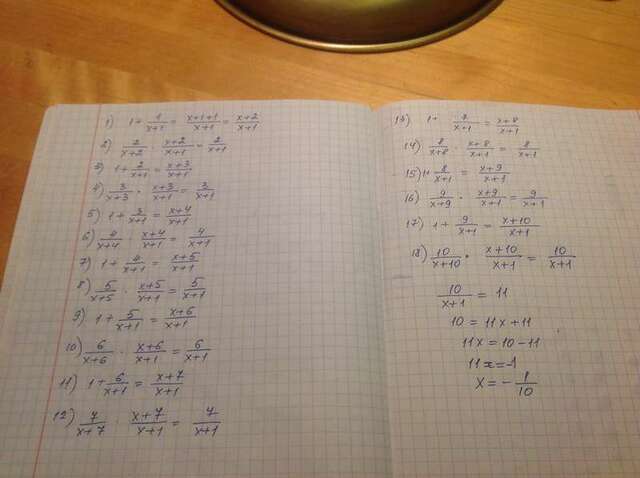 1) 1 + 1/(x+1) = (x+1+1)/(x+1) = (x+2)/(x+1)
2) 2/(x+2) · (x+2)/(x+1) = 2/(x+1)
3) 1 + 2/(x+1) = (x+3)/(x+1)
4) 3/(x+3) · (x+3)/(x+1) = 3/(x+1)
5) 1 + 3/(x+1) = (x+4)/(x+1)
6) 4/(x+4) · (x+4)/(x+1) = 4/(x+1)
7) 1 + 4/(x+1) = (x+5)/(x+1)
8) 5/(x+5) · (x+5)/(x+1) = 5/(x+1)
9) 1 + 5/(x+1) = (x+6)/(x+1)
10) 6/(x+6) · (x+6)/(x+1) = 6/(x+1)
11) 1 + 6/(x+1) = (x+7)/(x+1)
12) 7/(x+7) · (x+7)/(x+1) = 7/(x+1)
13) 1 + 7/(x+1) = (x+8)/(x+1)
14) 8/(x+8) · (x+8)/(x+1) = 8/(x+1)
15) 1 + 8/(x+1) = (x+9)/(x+1)
16) 9/(x+9) · (x+9)/(x+1) = 9/(x+1)
17) 1 + 9/(x+1) = (x+10)/(x+1)
18) 10/(x+10) · (x+10)/(x+1) = 10/(x+1)
10/(x+1) = 11
10 = 11x + 11
11x = 10 - 11
11x = -1
x = - 1/10